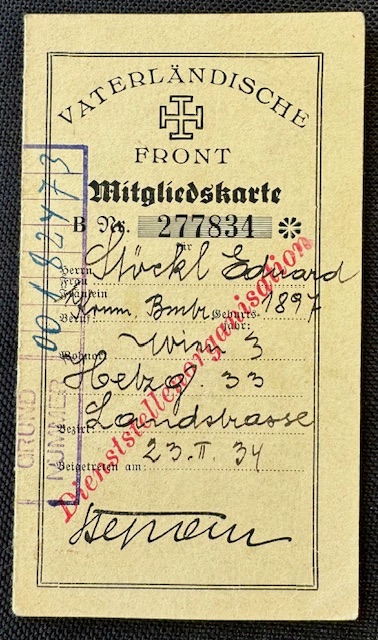 VATERLÄNDISCHE
FRONT
Mitgliedskarte
B Nr. 277834
für
Herrn
Frau
Fräulein
Stöckl Eduard
Beruf: Komm. Bmtr. Geburts-jahr: 1897
Wohnort: Wien 3
Hetzg. 33
Bezirk: Landstrasse
Beigetreten am: 23. II. 34
Dienststellenorganisation
GRUND
NUMMER
00182473